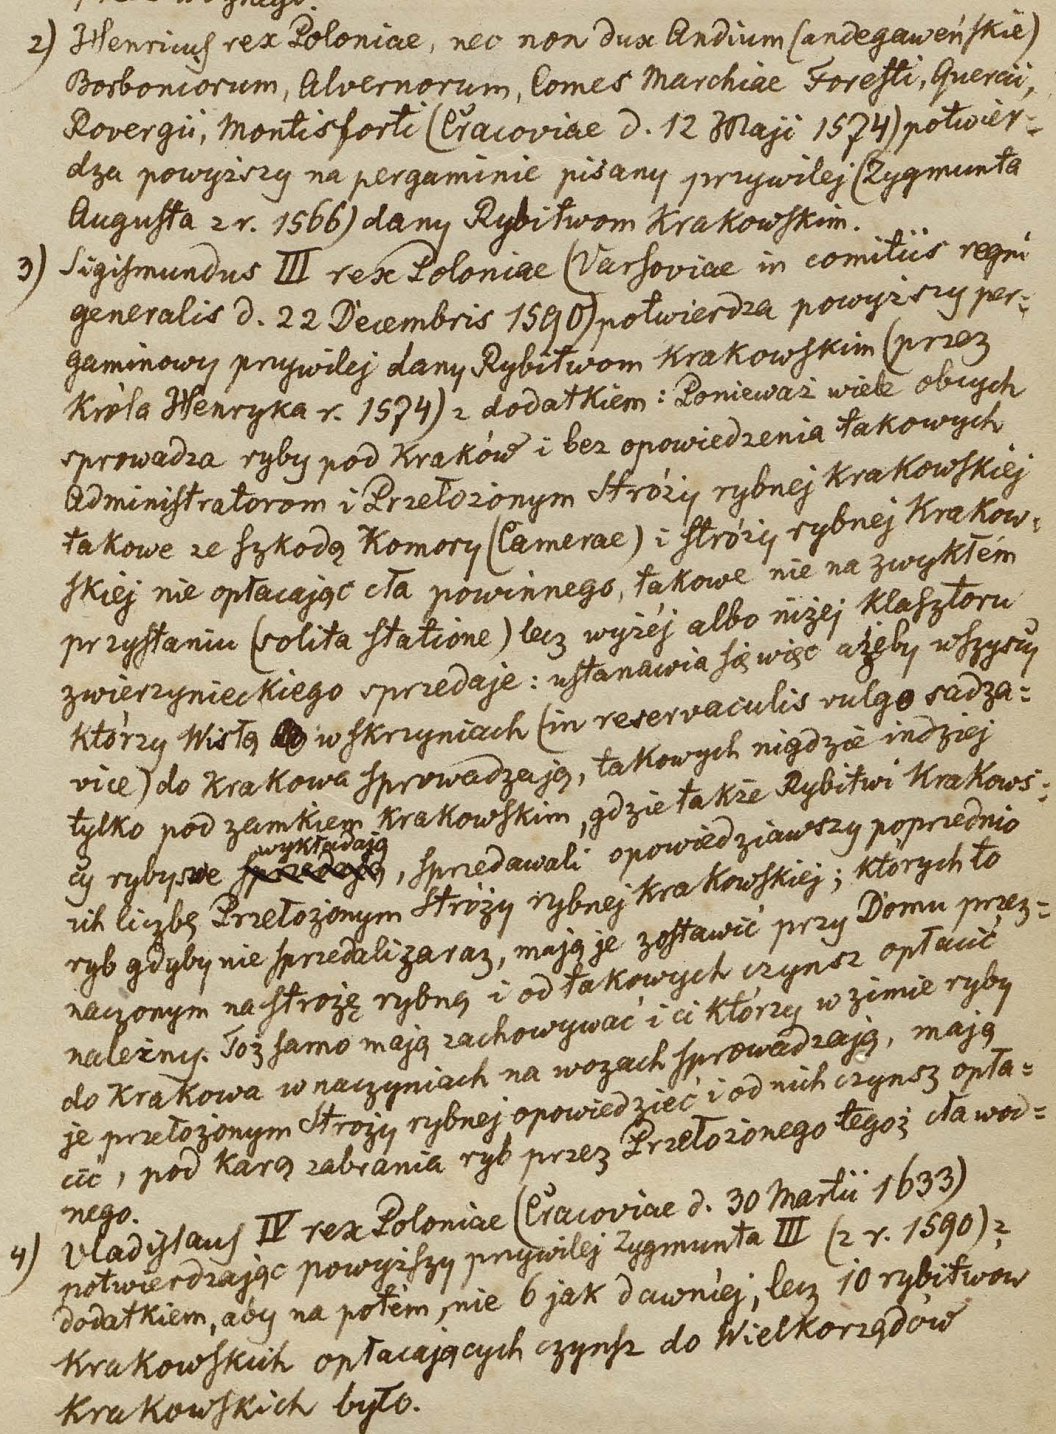 2) Henricus rex Poloniae, nec non dux Andium (andegaweńskie)
Borboniorum, Alvernorum, Comes Marchiae Foresti, Quercii,
Rovergii, Montisforti (Cracoviae d. 12 Maji 1574) potwier=
dza powyższy na pergaminie pisany przywilej (Zygmunta
Augusta z r. 1566) dany Rybitwom Krakowskim.
3) Sigismundus III rex Poloniae (Varsoviae in comitiis regni
generalis d. 22 Decembris 1590) potwierdza powyższy per=
gaminowy przywilej dany Rybitwom Krakowskim (przez
Króla Henryka r. 1574) z dodatkiem: Ponieważ wiele obcych
sprowadza ryby pod Kraków i bez opowiedzenia takowych
Administratorom i Przełożonym Stróży rybnej Krakowskiej
takowe ze szkodą Komory (Camerae) i stróży rybnej Krakow=
skiej nie opłacając cła powinnego, takowe nie na zwykłém
przystaniu (solita statione) lecz wyżéj albo niżej Klasztoru
zwierzynieckiego sprzedaje: ustanawia się więc ażeby wszyscy
którzy Wisłą w skrzyniach (in reservaculis vulgo sadza=
vice) do Krakowa sprowadzają, takowych nigdzie indziej
tylko pod zamkiem Krakowskim, gdzie także Rybitwi Krakows=
cy ryby swe wykładają, sprzedawali opowiedziawszy poprzednio
ich liczbę Przełożonym Stróży rybnej Krakowskiej; których to
ryb gdyby nie sprzedali zaraz, mają je zostawić przy Domu przez=
naczonym na stróżę rybną i od takowych czynsz opłacić
należny. Toż samo mają zachowywać i ci którzy w zimie ryby
do Krakowa w naczyniach na wozach sprowadzają, mają
je przełożonym Stróży rybnej opowiedzieć i od nich czynsz opła=
cić, pod karą zabrania ryb przez Przełożonego tegoż cła wod=
nego.
4) Vladislaus IV rex Poloniae (Cracoviae d. 30 Martii 1633)
potwierdzając powyższy przywilej Zygmunta III (z r. 1590) z
dodatkiem, aby na potém, nie 6 jak dawniéj, lecz 10 rybitwów
Krakowskich opłacających czynsz do Wielkorządów
Krakowskich było.